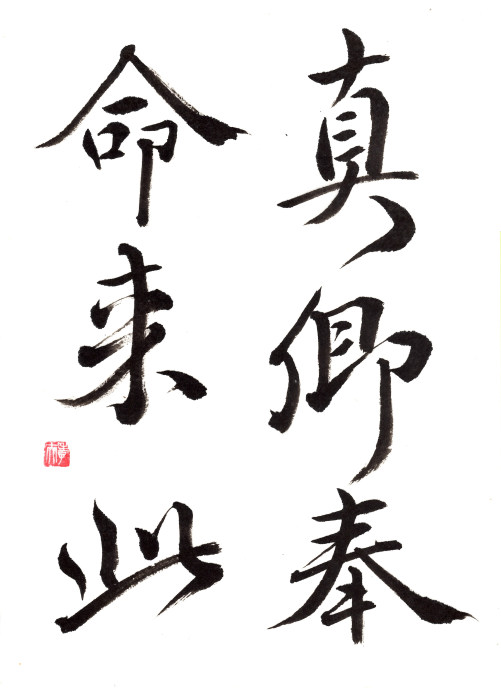 真卿奉
命来此